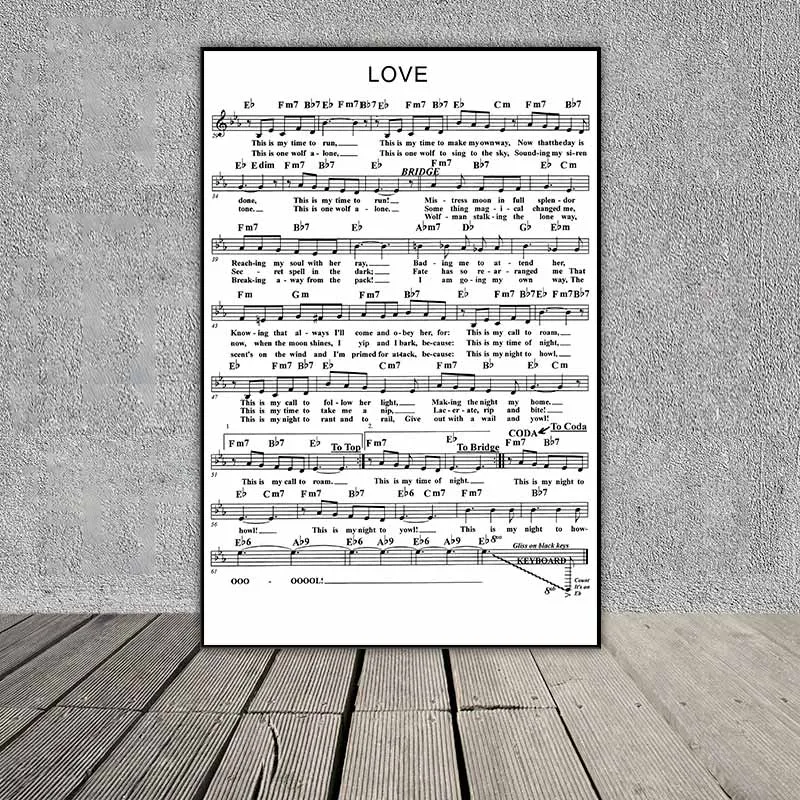 LOVE
Eb Fm7 Bb7 Eb Fm7 Bb7 Eb Fm7 Bb7 Eb Cm Fm7 Bb7
29
This is my time to run,____ This is my time to make my own way, Now that the day is
This is one wolf a - lone,____ This is one wolf to sing to the sky, Sound-ing my si-ren
Eb Edim Fm7 Bb7 Eb BRIDGE Fm7 Bb7 Eb Cm
34
done, This is my time to run!__ Mis - tress moon in full splen - dor
tone.__ This is one wolf a - lone.__ Some thing mag - i - cal changed me,
Wolf - man stalk - ing the lone way,
Fm7 Bb7 Eb Abm7 Db Gb Ebm
39
Reach-ing my soul with her ray,____ Bad - ing me to at - tend her,
See - ret spell in the dark;____ Fate has so re - ar - ranged me That
Break-ing a - way from the pack!____ I am go - ing my own way, The
Fm Gm Fm7 Bb7 Eb Fm7 Bb7 Eb Fm7 Bb7
43
Know - ing that al - ways I'll come and o - bey her, for: This is my call to roam,____
now, when the moon shines, I yip and I bark, be-cause: This is my time of night,____
scent's on the wind and I'm primed for attack, be-cause: This is my night to howl,____
Eb Fm7 Bb7 Eb Cm7 Fm7 Bb7 Eb
47
This is my call to fol - low her light,____ Mak-ing the night my home.____
This is my time to take me a nip,____ Lac - er - ate, rip and bite!____
This is my night to rant and to rail, Give out with a wail and yowl!____
CODA To Coda
1. 2.
Fm7 Bb7 Eb To Top Fm7 Eb To Bridge Fm7 Bb7
51
This is my call to roam.____ This is my time of night.____ This is my night to
Eb Cm7 Fm7 Bb7 Eb6 Cm7 Fm7 Bb7
56
howl!____ This is my night to yowl!____ This is my night to how-
Eb6 Ab9 Eb6 Ab9 Eb6 Ab9 Eb 8va Gliss on black keys
61
KEYBOARD
OOO - OOOOL!____ 8vb Count
It's an
Eb